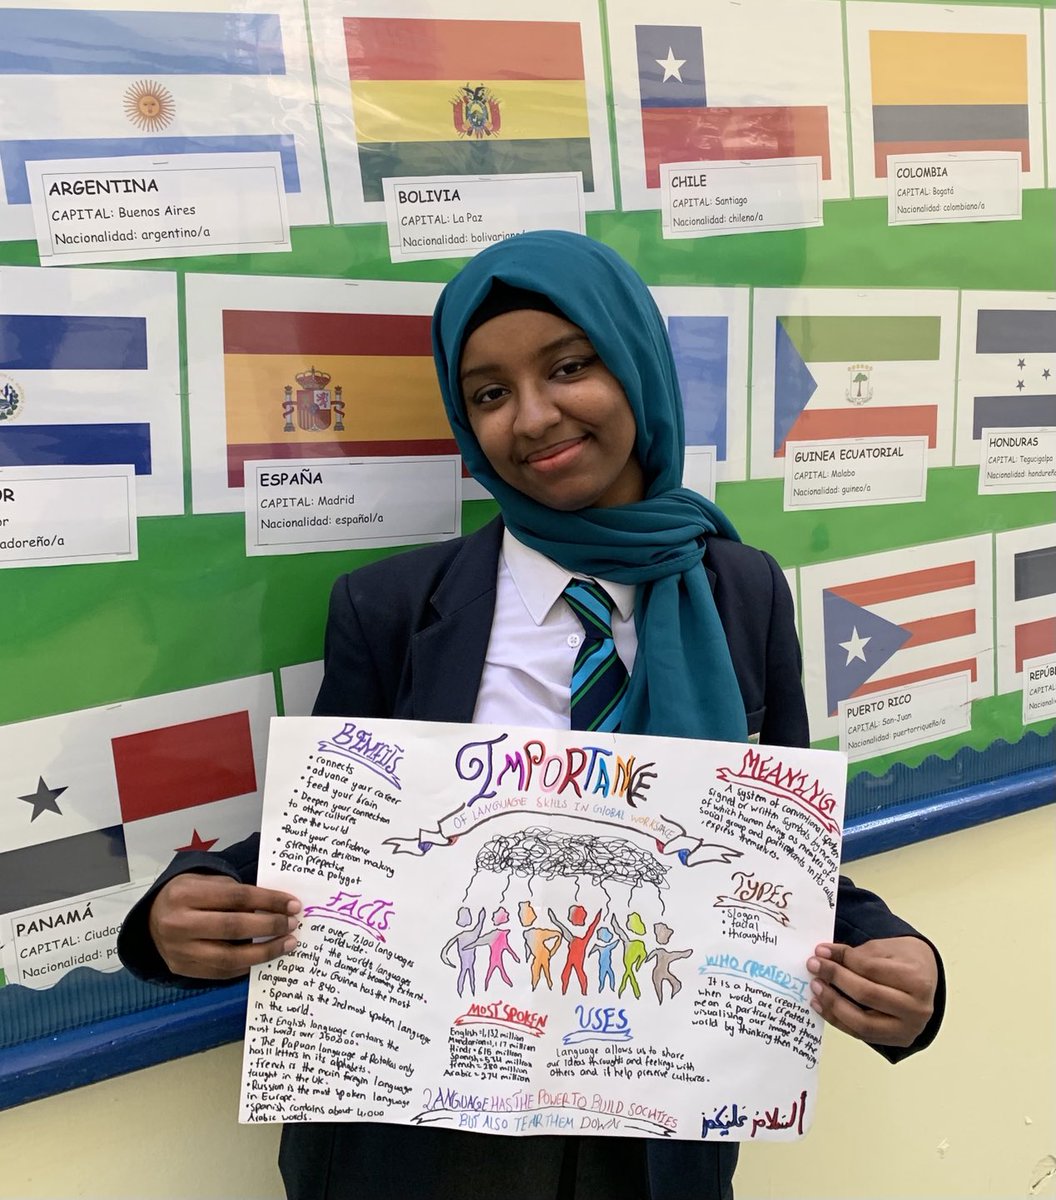 ARGENTINA
CAPITAL: Buenos Aires
Nacionalidad: argentino/a
BOLIVIA
CAPITAL: La Paz
Nacionalidad: boliviano/a
CHILE
CAPITAL: Santiago
Nacionalidad: chileno/a
COLOMBIA
CAPITAL: Bogotá
Nacionalidad: colombiano/a
OR
or
adoreño/a
ESPAÑA
CAPITAL: Madrid
Nacionalidad: español/a
GUINEA ECUATORIAL
CAPITAL: Malabo
Nacionalidad: guineo/a
HONDURAS
CAPITAL: Tegucigalpa
Nacionalidad: hondureñ
PUERTO RICO
CAPITAL: San-Juan
Nacionalidad: puertorriqueño/a
REPÚB
CAPITAL:
Nacional
PANAMÁ
CAPITAL: Ciudad
Nacionalidad: pa
IMPORTANCE
OF LANGUAGE SKILLS IN GLOBAL WORKSPACE
• connects
• advance your career
• feed your brain
• Deepen your connection
to other cultures
• see the world
• Boost your confidence
• strengthen decision making
• Gain prepective
• Become a polygot
FACTS
are over 7,100 languages
worldwide.
of the world's languages
currently in danger of becoming extent.
• Papua New Guinea has the most
language at 840.
• Spanish is the 2nd most spoken language
in the world.
• The English language contains the
most words over 250,000.
• The Papuan language of Rotokas only
has 11 letters in its alphabets.
• French is the main foreign language
taught in the UK.
• Russian is the most spoken language
in Europe.
• Spanish contains about 4,000
Arabic words.
MOST SPOKEN
English = 1,132 million
Mandarian = 1,117 million
Hindi = 615 million
Spanish = 534 million
french = 280 million
Arabic = 274 million
USES
Language allows us to share
our ideas thoughts and feelings with
others and it help preserve cultures.
MEANING
A system of conventional spoken
signed or written symbols by means
of which human being as members of a
social group and participants in its culture
express themselves.
TYPES
• Slogan
• facial
• throughtful
WHO CREATED IT
It is a human creation
when words are created to
mean a particular thing through
visualising our image of the
world by thinking then naming
LANGUAGE HAS THE POWER TO BUILD SOCITIES
BUT ALSO TEAR THEM DOWN
السلام عليكم